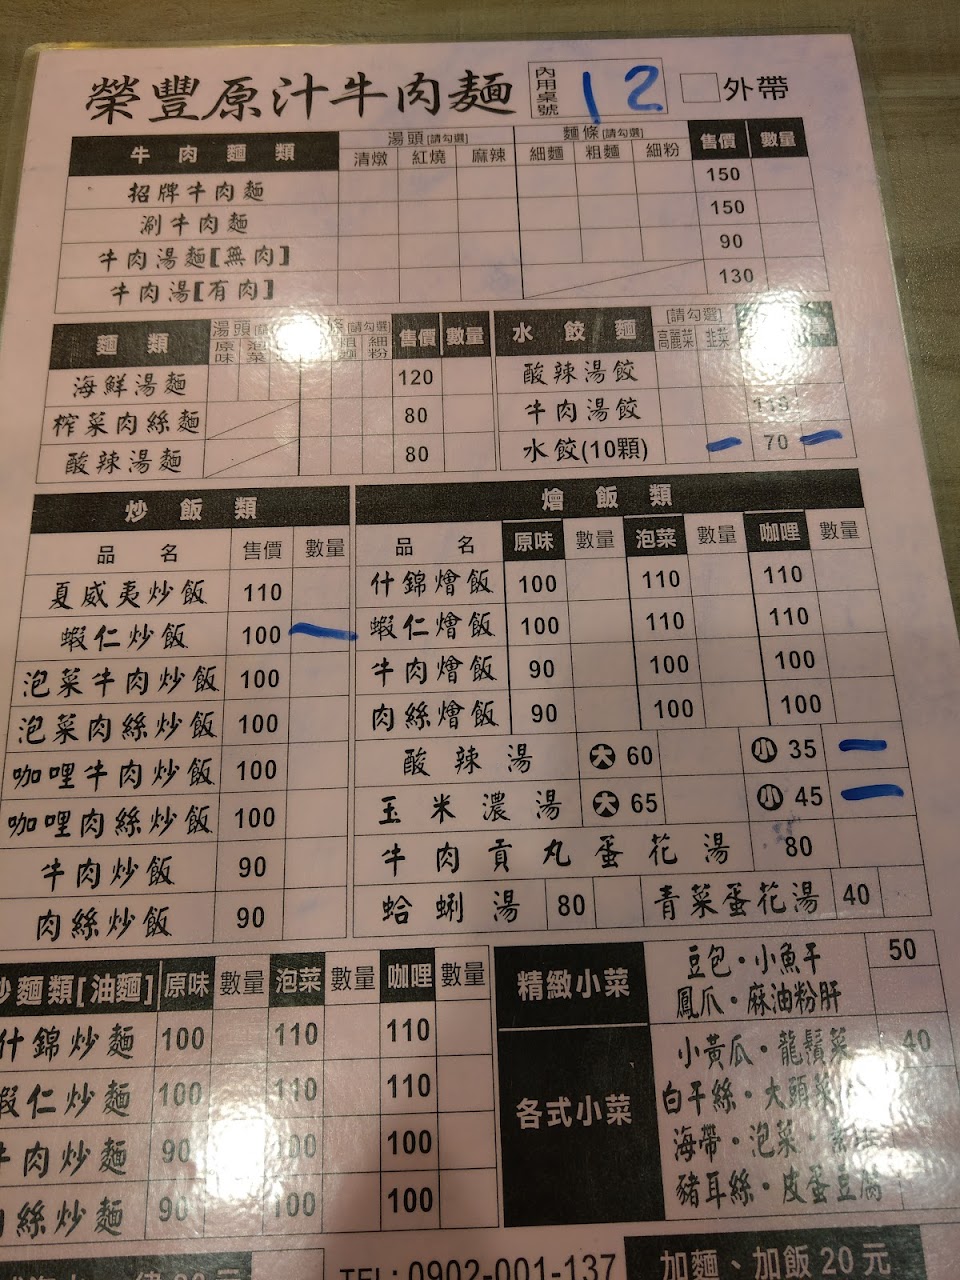 榮豐原汁牛肉麵 內用桌號 12 □外帶
牛肉麵類 湯頭[請勾選] 麵條[請勾選] 售價 數量
清燉 紅燒 麻辣 細麵 粗麵 細粉
招牌牛肉麵 150
涮牛肉麵 150
牛肉湯麵[無肉] 90
牛肉湯[有肉] 130
麵類 湯頭 [請勾選] 售價 數量
原味 泡菜 細粉
海鮮湯麵 120
榨菜肉絲麵 80
酸辣湯麵 80
水餃麵 [請勾選]
高麗菜 韭菜
酸辣湯餃
牛肉湯餃
水餃(10顆) 70
炒飯類
品名 售價 數量
夏威夷炒飯 110
蝦仁炒飯 100
泡菜牛肉炒飯 100
泡菜肉絲炒飯 100
咖哩牛肉炒飯 100
咖哩肉絲炒飯 100
牛肉炒飯 90
肉絲炒飯 90
燴飯類
品名 原味 數量 泡菜 數量 咖哩 數量
什錦燴飯 100 110 110
蝦仁燴飯 100 110 110
牛肉燴飯 90 100 100
肉絲燴飯 90 100 100
酸辣湯 大 60 小 35
玉米濃湯 大 65 小 45
牛肉貢丸蛋花湯 80
蛤蜊湯 80 青菜蛋花湯 40
炒麵類[油麵] 原味 數量 泡菜 數量 咖哩 數量
什錦炒麵 100 110 110
蝦仁炒麵 100 110 110
牛肉炒麵 90 100 100
肉絲炒麵 90 100 100
精緻小菜 豆包・小魚干 50
鳳爪・麻油粉肝
各式小菜 小黃瓜・龍鬚菜 40
白干絲・大頭菜
海帶・泡菜・
豬耳絲・皮蛋豆腐
TEL:0902-001-137 加麵、加飯20元